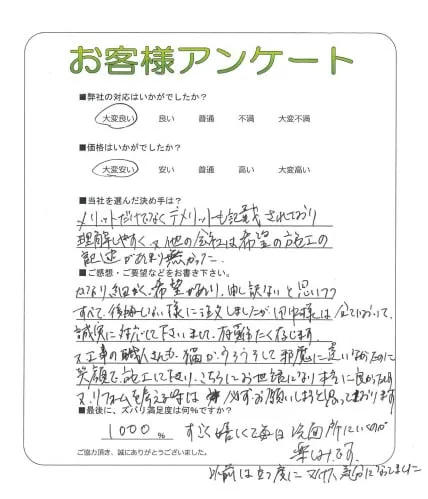 お客様アンケート
■弊社の対応はいかがでしたか？
大変良い 良い 普通 不満 大変不満
■価格はいかがでしたか？
大変安い 安い 普通 高い 大変高い
■当社を選んだ決め手は？
メリットだけでなくデメリットも記載されており
理解しやすく、又他の会社は希望の施工の
記述があまり無かった。
■ご感想・ご要望などをお書き下さい。
かなり細かく希望があり、申し訳ないと思いつつ
すべて、後悔しない様に注文しましたが 様は全てにおいて、
誠実に対応して下さいまして、有難たく存じます。
又工事の職人さんも、猫が、うろうろして邪魔に違いなかったのに
笑顔で施工して下さり、こちらにお世話になり本当に良かったです
又、リフォームを考える時は 必ずお願いしようと思っております
■最後に、ズバリ満足度は何％ですか？
1000 ％ すごく嬉しくて毎日洗面所にいくのが
楽しみです。
ご協力頂き、誠にありがとうございました。
以前は立つ度にマイナス気分になってました